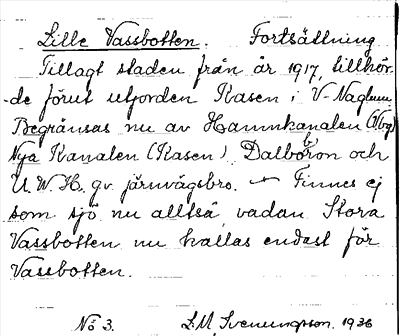 Lille Vassbotten. Fortsättning
Tillagt staden från år 1917, tillhör-
de förut utjorden Kasen i V-Naglum
Begränsas nu av Hamnkanalen (Vbg)
Nya Kanalen (Kasen) Dalbobron och
U.W.H. gv järnvägsbro. — Finnes ej
som sjö nu alltså, vadan Stora
Vassbotten nu kallas endast för
Vassbotten.
No 3. L.M. Svenungson. 1936